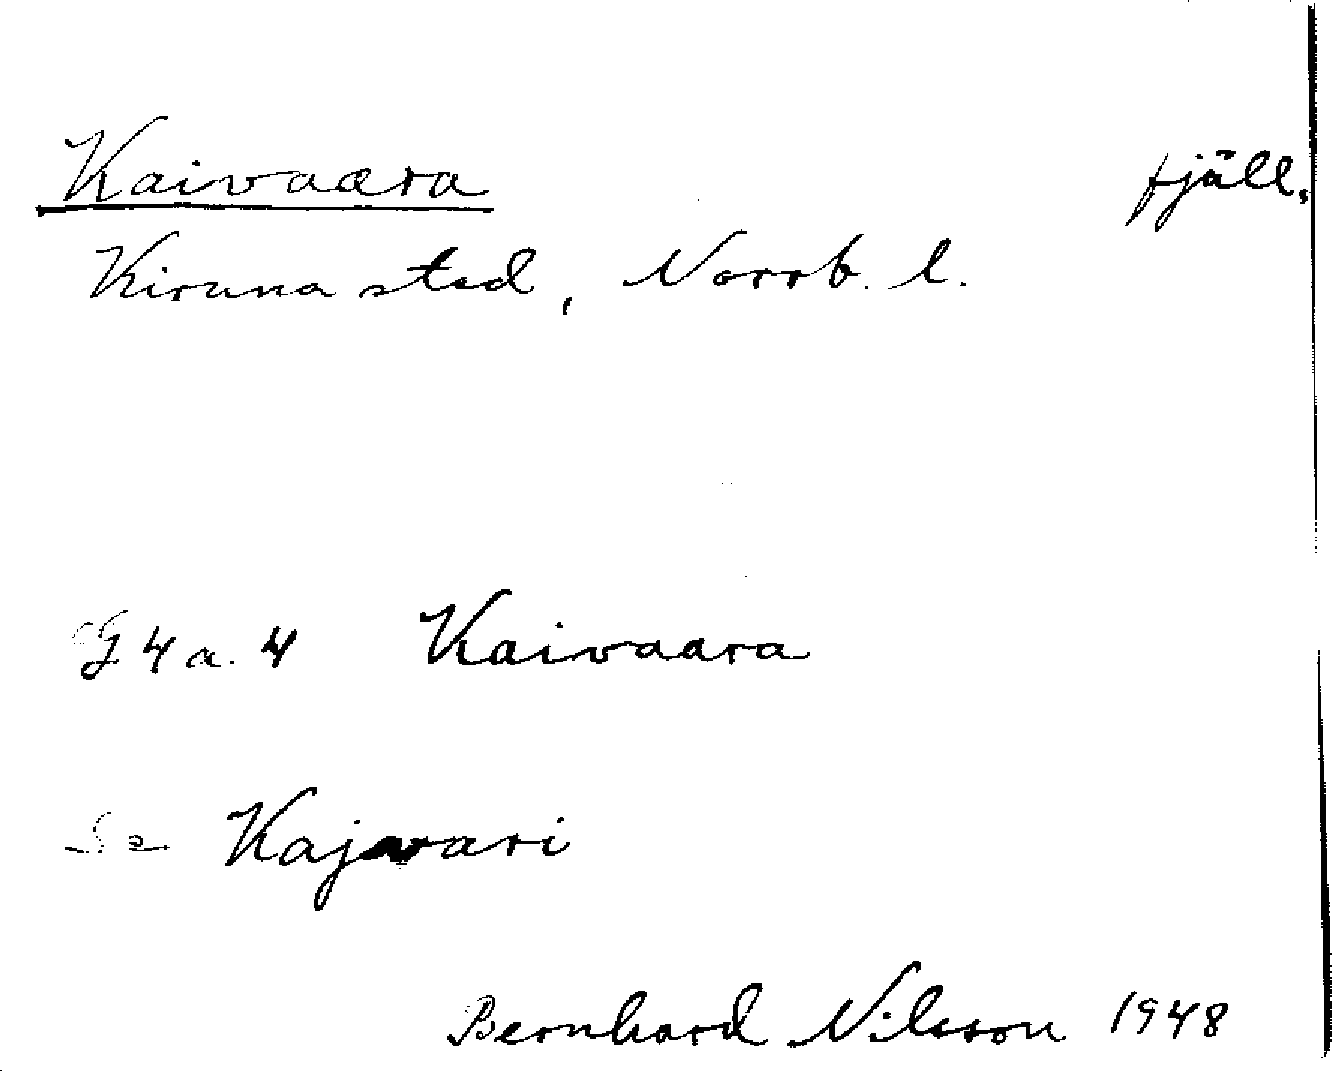 Kaivaara fjäll.
Kiruna stad, Norrb. l.
G 4 a. 4 Kaivaara
Se Kajvari
Bernhard Nilsson 1948